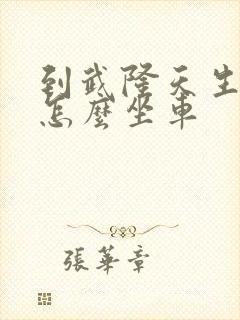 到武隆天生
怎麼坐車
張華章